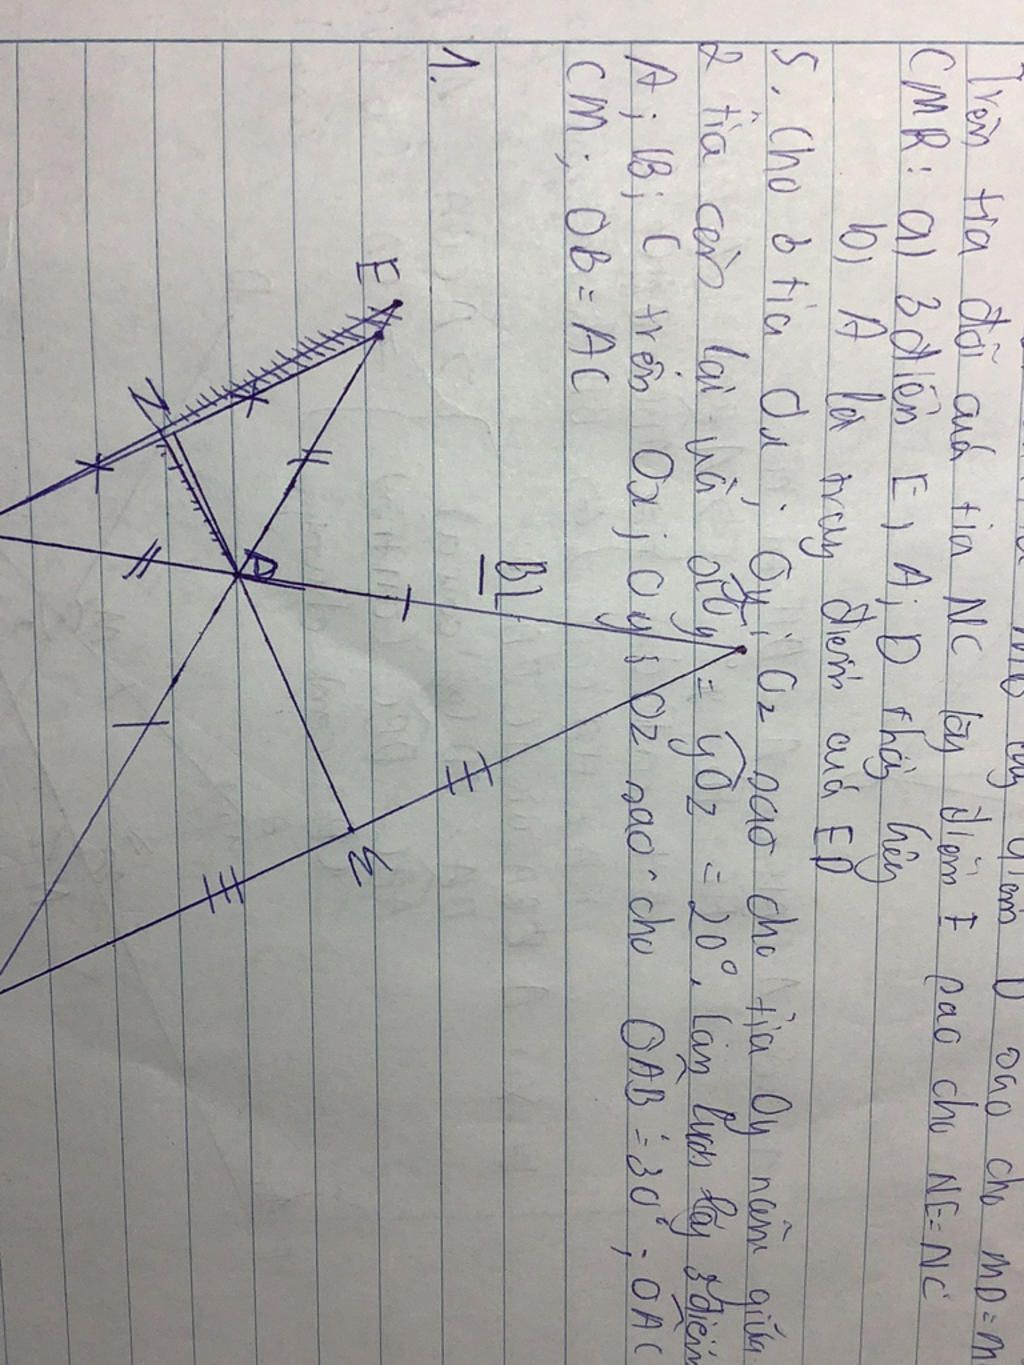 Trên tia đối của tia NC lấy điểm E sao cho NE = NC
CMR: a) 3 điểm E, A, D thẳng hàng
b) A là trung điểm của ED
5. Cho 3 tia Ox; Oy; Oz sao cho tia Oy nằm giữa
2 tia còn lại và xOy = yOz = 20°. Lần lượt lấy 3 điểm
A; B; C trên Ox; Oy; Oz sao cho OAB = 30°; OAC
CM: OB = AC
1.
BL
E
N
A
M